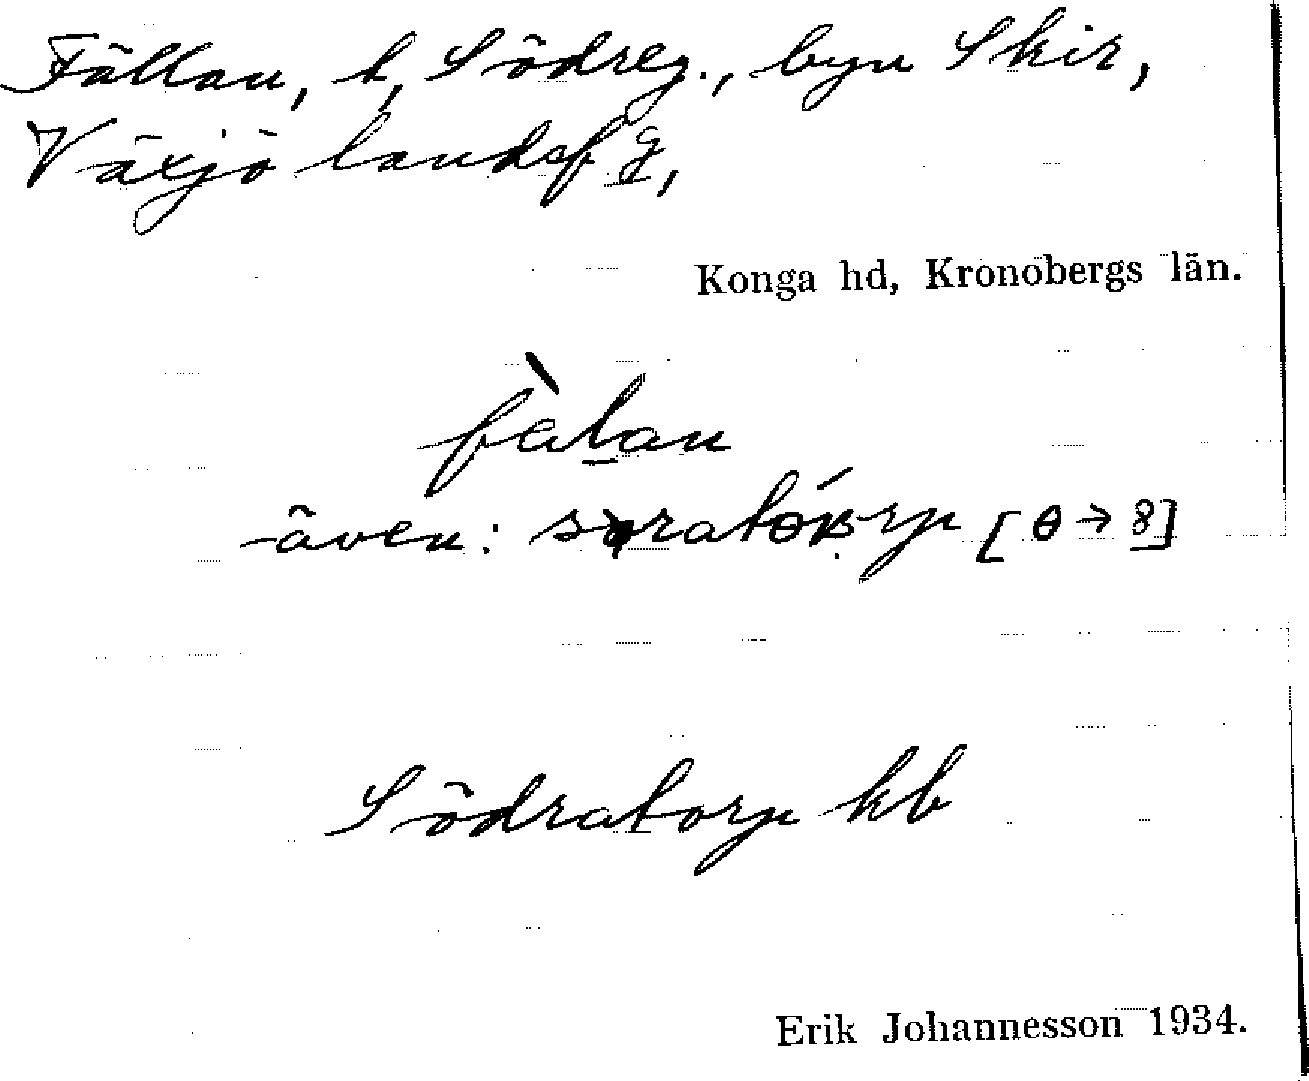 Fällan, t, Södreg., byn Skir,
Växjö landsf g,
Konga hd, Kronobergs län.
även: [ɵ → 8]
Södratorp kb
Erik Johannesson 1934.